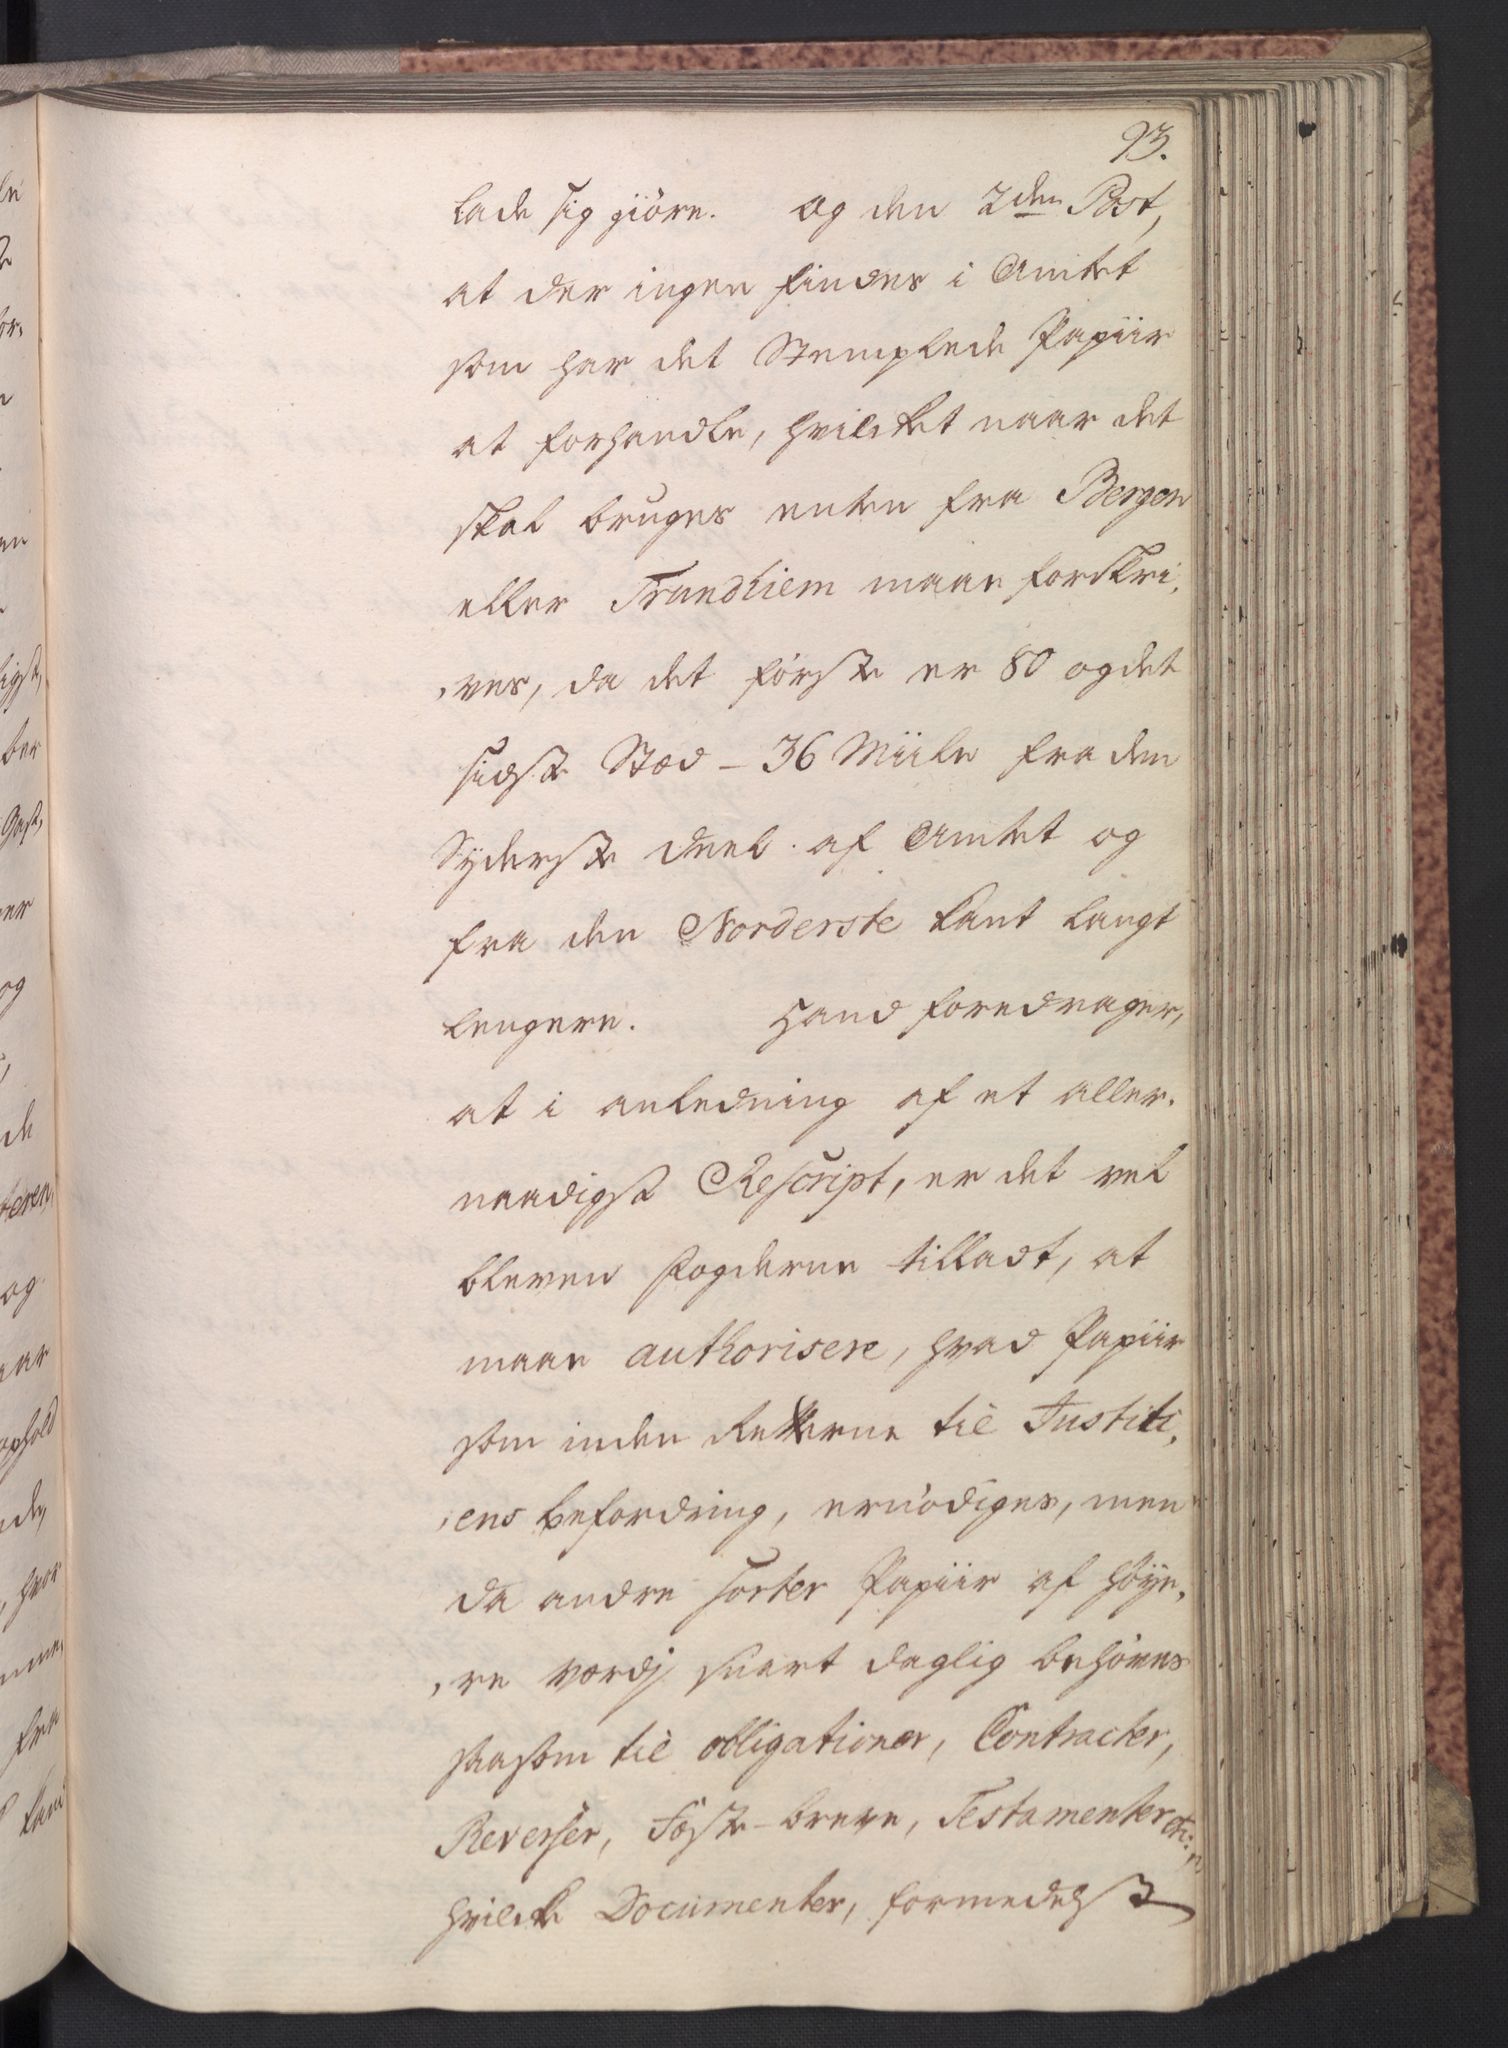 93.
lade sig giöre. og den 2den Post,
at der ingen findes i Amtet
som har det Stemplede Papiir
at forhandle, hvilcket naar det
skal bruges enten fra Bergen
eller Trundhiem maae forskri,
,ves, da det første er 80 og det
sidste Stæd - 36 Miile fra den
Syderste deel af Amtet og
fra den Norderste kant langt
lengere. Hand foredrager,
at i anledning af et aller,
naadigst Rescript, er det vel
bleven Fogderne tilladt, at
maae authorisere, hvad Papiir
som inden Retterne til Justiti,
,ens befordring, ernødiges, men
da andre sorter Papiir af høye,
,re værdj snart daglig behøves
saasom til obligationer, Contracter,
Reverser, Fæste-breve, Testamenter etc:
hvilcke Documenter, formedelst